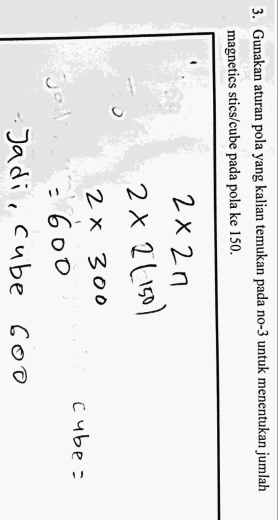 3. Gunakan aturan pola yang kalian temukan pada no-3 untuk menentukan jumlah
magnetics stics/cube pada pola ke 150.
2 x 2n
2 x 2(150)
2 x 300
= 600
cube =
Jadi, cube 600